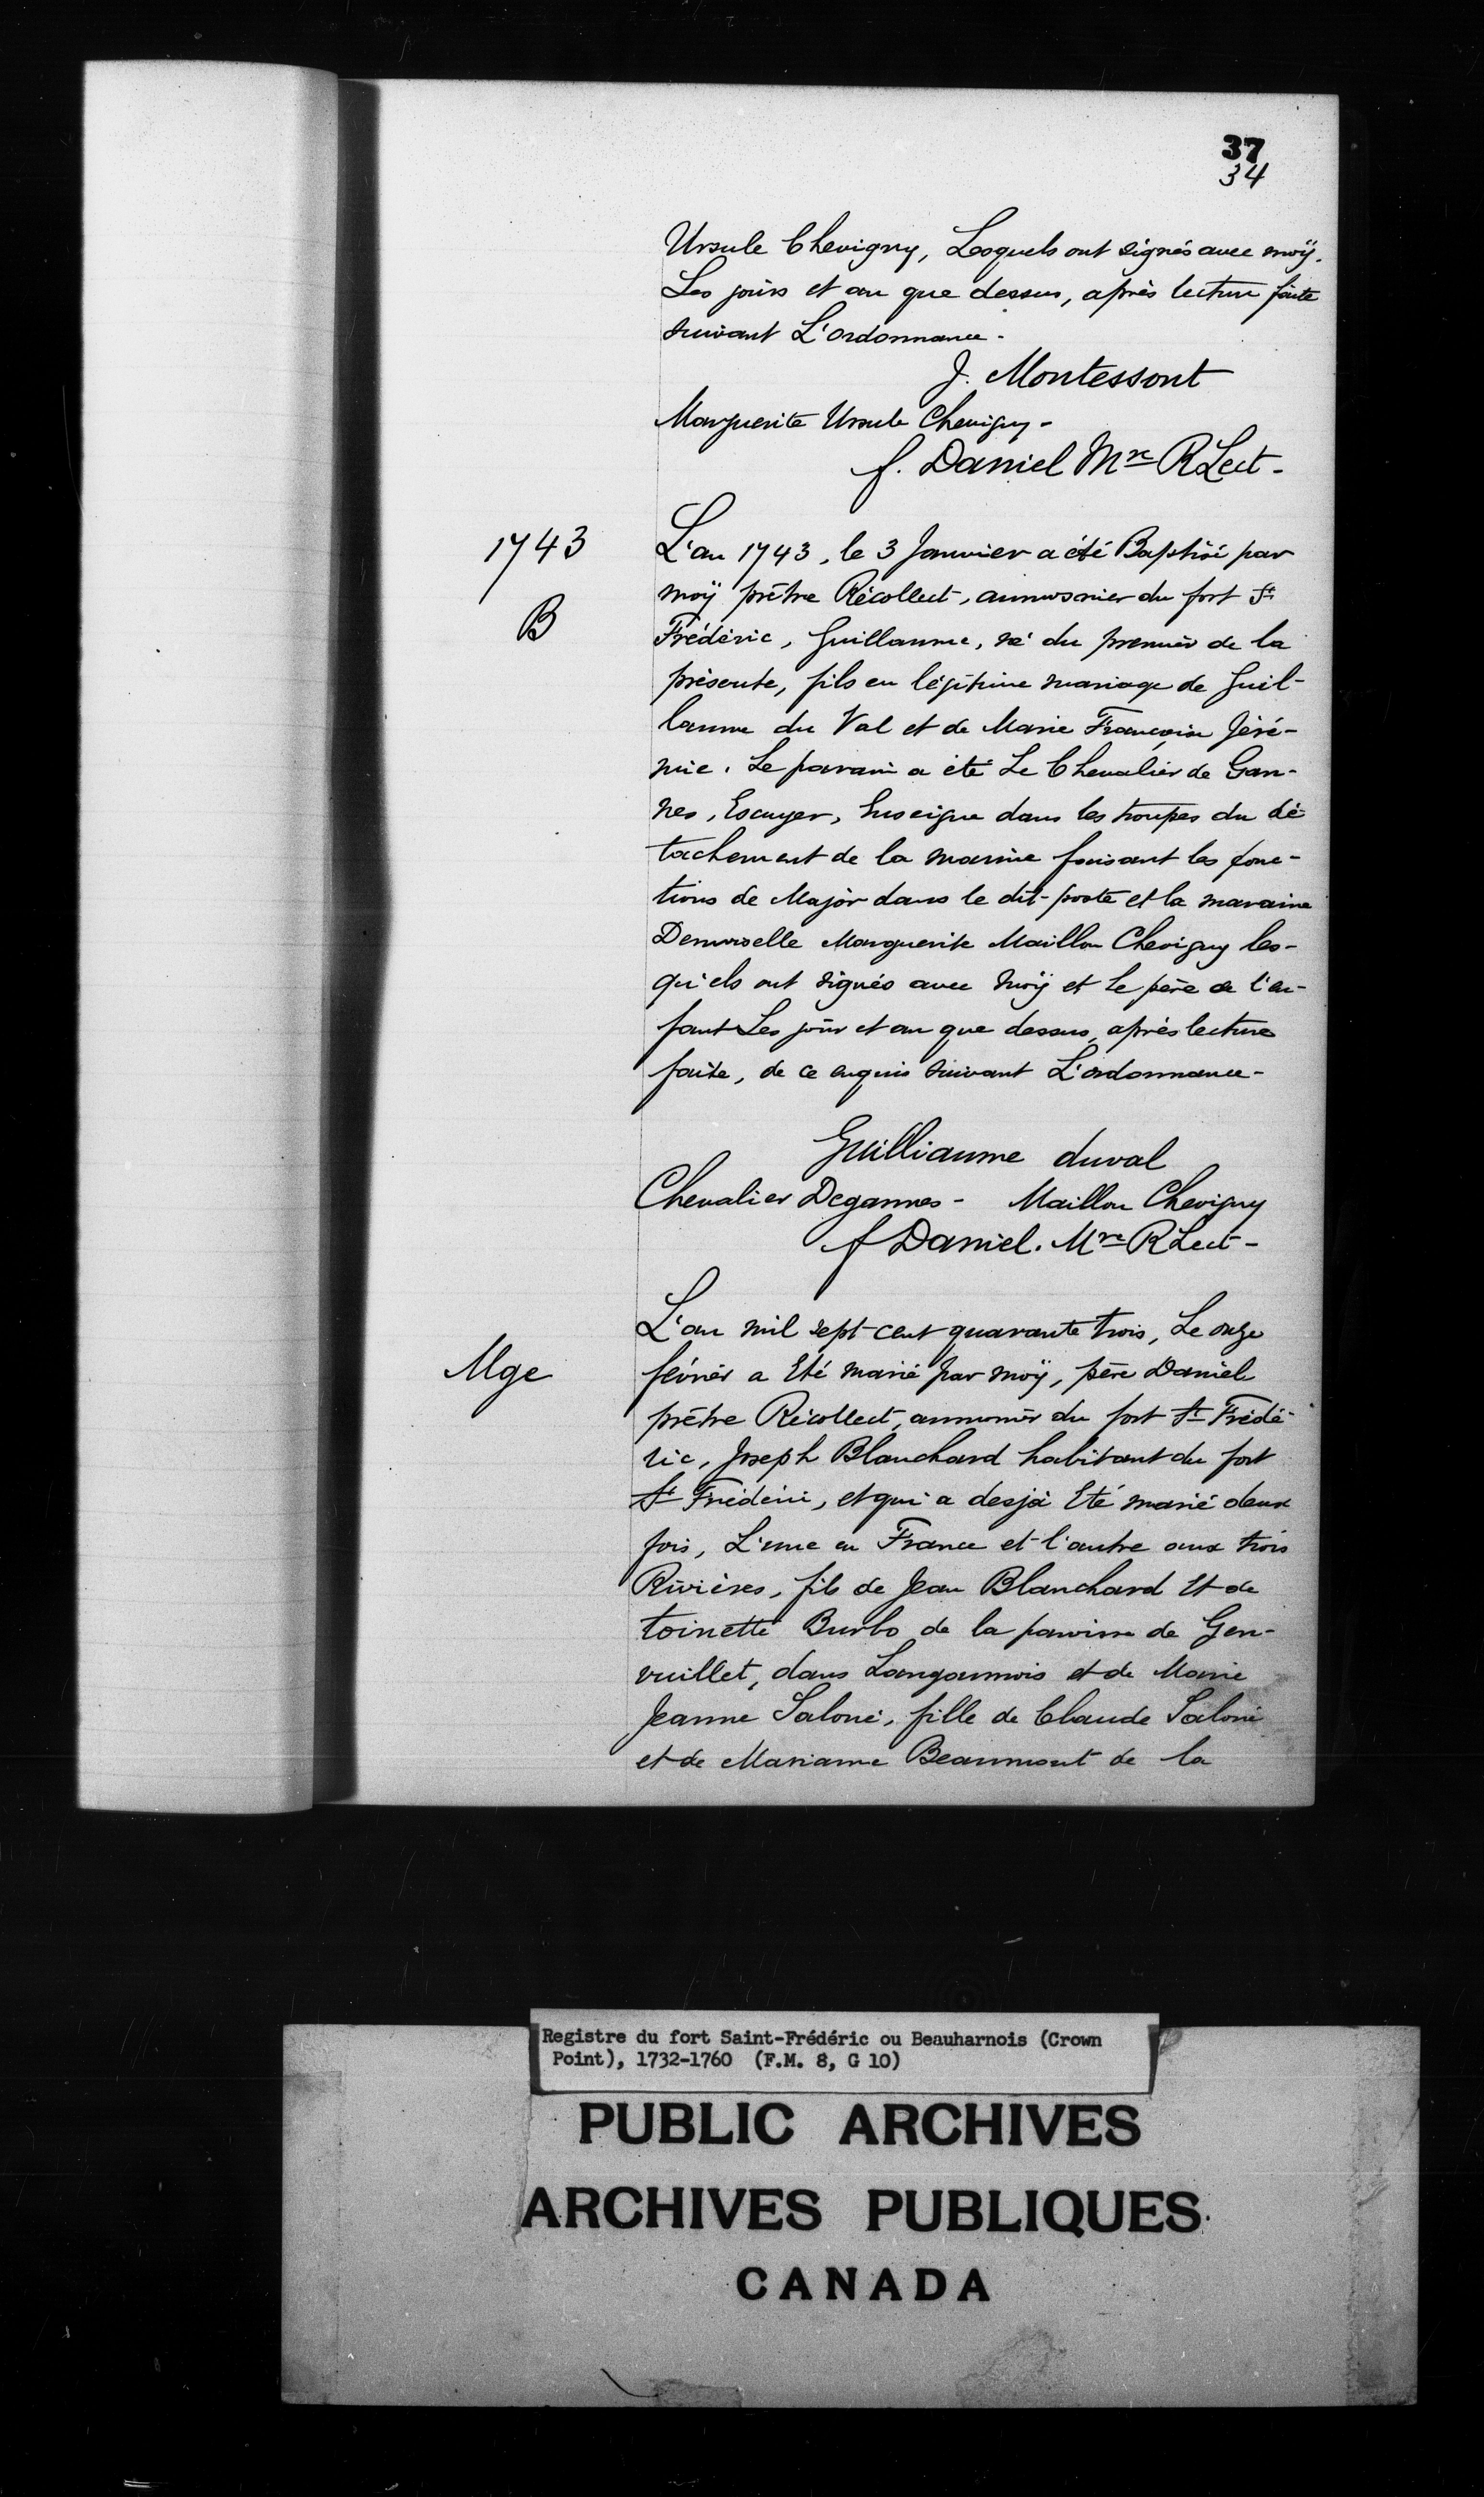 37
34
Ursule Chevigny, Lesquels ont signés avec moÿ.
Les jours et an que dessus, après lecture faite
suivant L'ordonnance.
J. Montessont
Marguerite Ursule Chevigny -
f. Daniel Mre RLect -
1743
L'an 1743, le 3 Janvier a été Baptisé par
moÿ prêtre Récollect, aumosnier du fort St
B
Frédéric, Guillaume, né du premier de la
présente, fils en légitime mariage de Guil-
laume du Val et de Marie Françoise Jéré-
mie. Le parain a été Le Chevalier de Gan-
nes, Escuyer, Enseigne dans les troupes du dé-
tachement de la marine faisant les fonc-
tions de Major dans le dit poste et la maraine
Demoiselle Marguerite Maillou Chevigny les-
quels ont signés avec moÿ et le père de l'en-
fant Les jour et an que dessus, après lecture
faite, de ce enquis suivant L'ordonnance -
Guilliaume duval
Chevalier Degannes - Maillou Chevigny
f Daniel. Mre RLect -
L'an mil sept cent quarante trois, Le onze
Mge
février a Eté marié par moÿ, père Daniel
prêtre Récollect, aumonier du fort St Frédé-
ric, Joseph Blanchard habitant du fort
St Fréderic, et qui a desja Eté marié deux
fois, L'une en France et l'autre aux trois
Rivières, fils de Jean Blanchard Et de
toinette Burbo de la paroisse de Gen-
vuillet, dans Langoumois et de Marie
Jeanne Saloné, fille de Claude Saloné
et de Marianne Beaumont de la
Registre du fort Saint-Frédéric ou Beauharnois (Crown
Point), 1732-1760 (F.M. 8, G 10)
PUBLIC ARCHIVES
ARCHIVES PUBLIQUES
CANADA